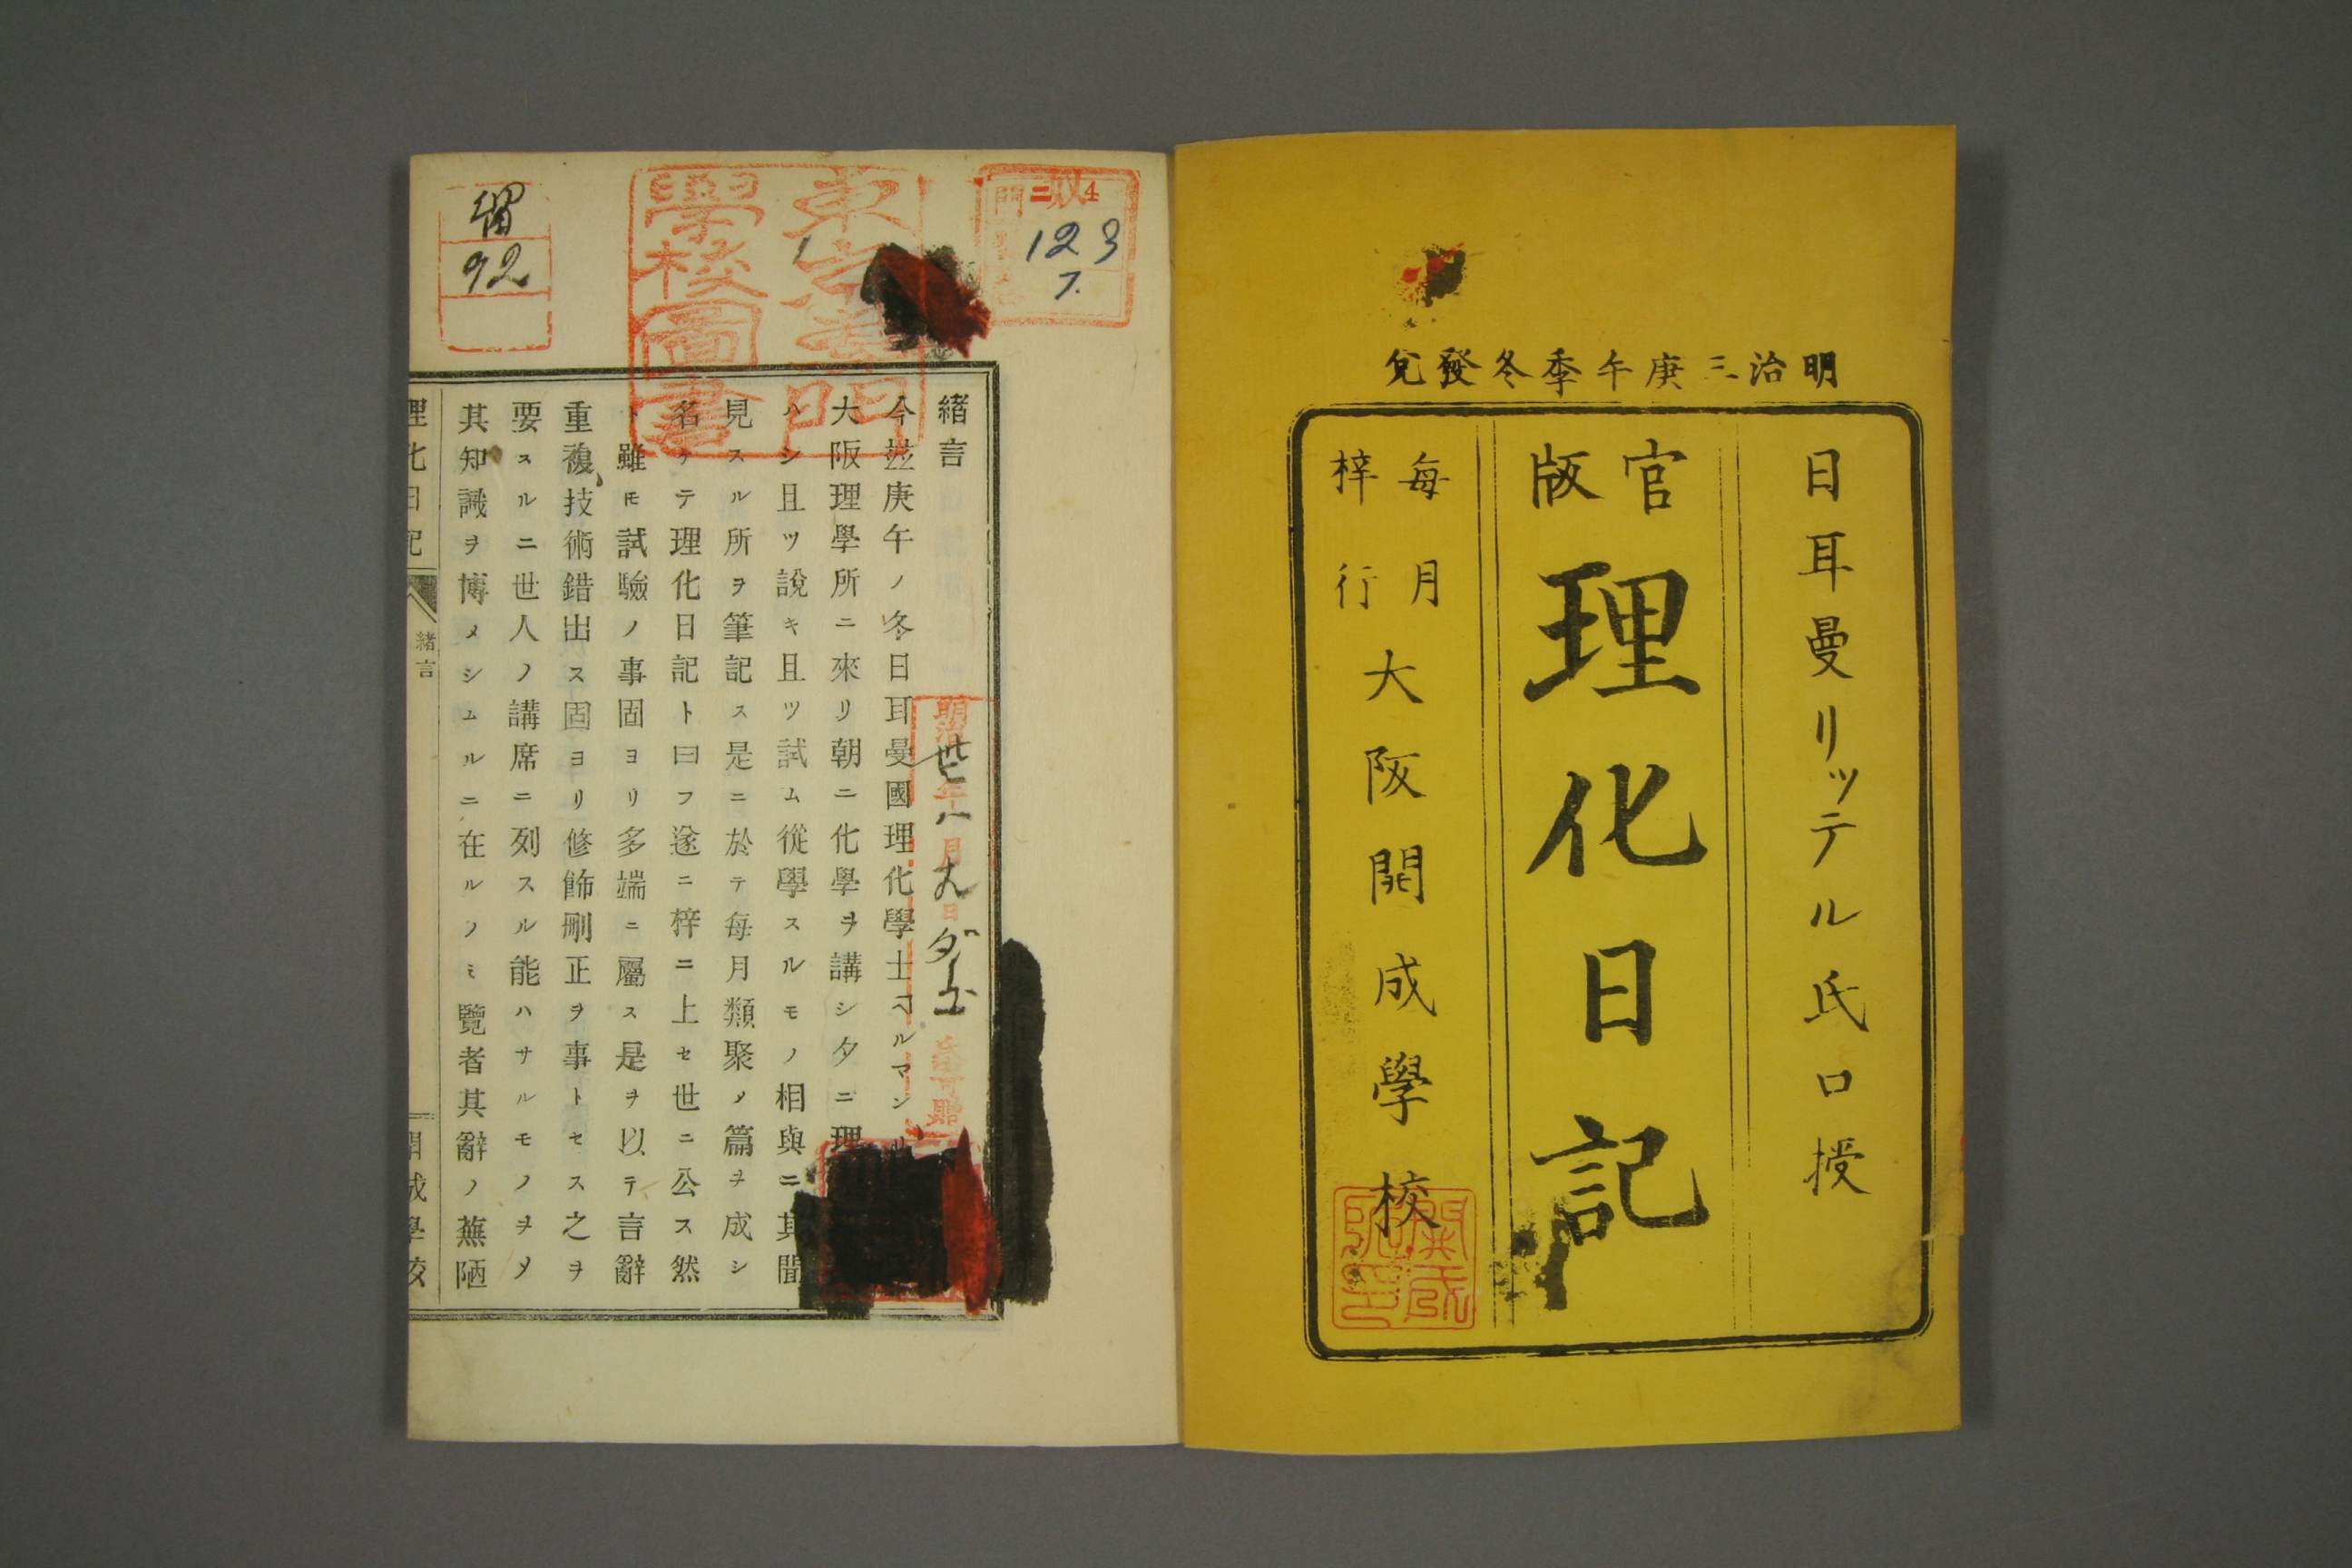 明治三庚午季冬發兌
日耳曼リッテル氏口授
官版
理化日記
每月梓行
大阪開成學校
4
123
7.
92
東京專門
學校圖書
緒言
今茲庚午ノ冬日耳曼國理化學士ヘルマンリ
大阪理學所ニ來リ朝ニ化學ヲ講シ夕ニ理
ハシ且ツ說キ且ツ試ム從學スルモノ相與ニ其聞
見スル所ヲ筆記ス是ニ於テ每月類聚メ篇ヲ成シ
名ケテ理化日記ト曰フ遂ニ梓ニ上セ世ニ公ス然
ト雖モ試驗ノ事固ヨリ多端ニ屬ス是ヲ以テ言辭
重複技術錯出ス固ヨリ修飾刪正ヲ事トセス之ヲ
要スルニ世人ノ講席ニ列スル能ハサルモノヲメ
其知識ヲ博メシムルニ在ルノミ覽者其辭ノ蕪陋
理化日記
緒言
開成學校